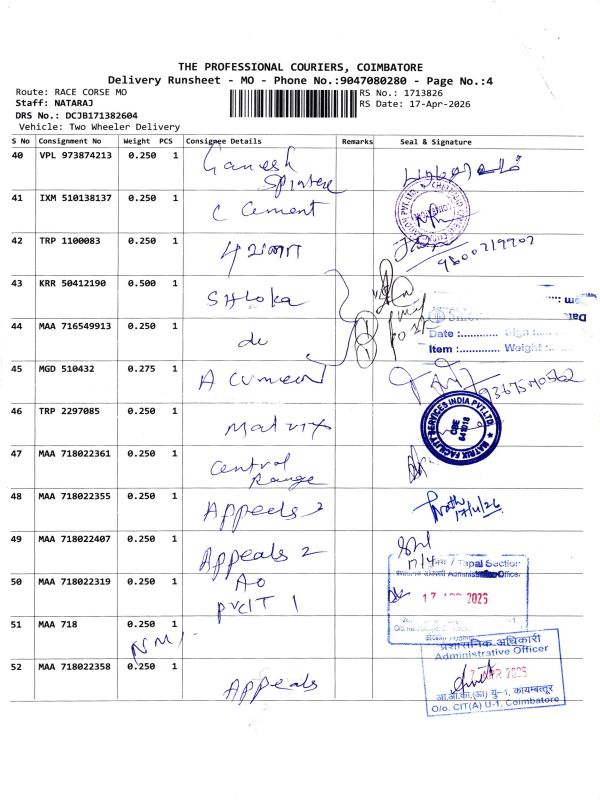 THE PROFESSIONAL COURIERS, COIMBATORE
Delivery Runsheet - MO - Phone No.:9047080280 - Page No.:4
Route: RACE CORSE MO
RS No.: 1713826
Staff: NATARAJ
RS Date: 17-Apr-2026
DRS No.: DCJB171382604
Vehicle: Two Wheeler Delivery
S No Consignment No Weight PCS Consignee Details Remarks Seal & Signature
40 VPL 973874213 0.250 1 Ganesh
41 IXM 510138137 0.250 1 C Cement
42 TRP 1100083 0.250 1
9600719707
43 KRR 50412190 0.500 1 Shloka
44 MAA 716549913 0.250 1 do
Date :............
Item :............ Weight :
45 MGD 510432 0.275 1
9367540562
46 TRP 2297085 0.250 1 Matrix
MATRIX FACILITY SERVICES INDIA PVT.LTD.
CBE
641018
47 MAA 718022361 0.250 1 Central
Range
48 MAA 718022355 0.250 1 Appeals 2
17/4/26
49 MAA 718022407 0.250 1 Appeals 2
17/4
Tapal Section
50 MAA 718022319 0.250 1 AO
PrCIT 1
17 APR 2026
51 MAA 718 0.250 1
NM1
प्रशासनिक अधिकारी
Administrative Officer
52 MAA 718022358 0.250 1 Appeals
APR 2026
आ.आ.का.(अ) यु-1, कायम्बत्तूर
O/o. CIT(A) U-1, Coimbatore